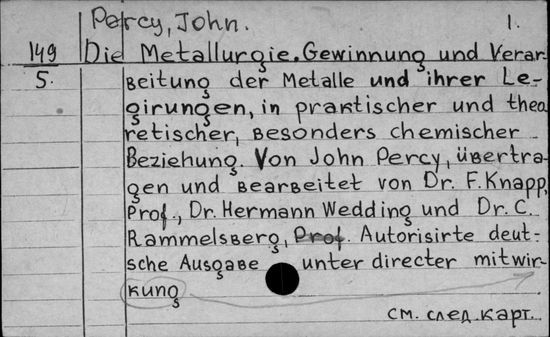 Percy, John. 1.
149 Die Metallurgie. Gewinnung und Verar-
5. beitung der Metalle und ihrer Le-
girungen, in praktischer und theo
retischer, besonders chemischer
Beziehung. Von John Percy, übertra-
gen und bearbeitet von Dr. F. Knapp,
Prof., Dr. Hermann Wedding und Dr. C.
Rammelsberg, Prof. Autorisirte deut-
sche Ausgabe unter directer mitwir-
kung
см. след. карт.